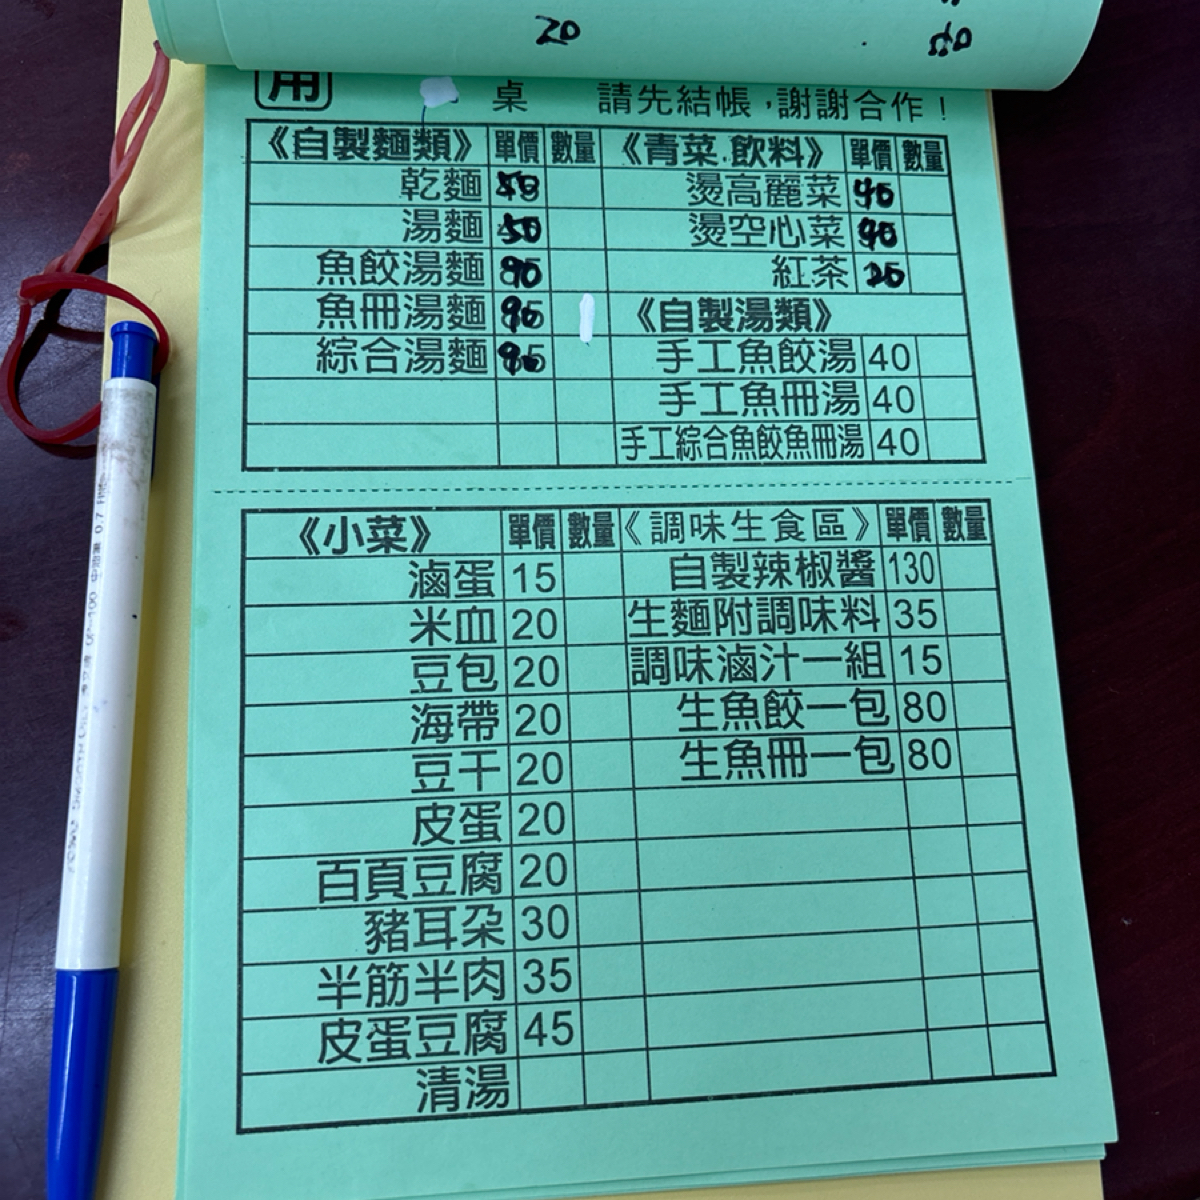 20
用
桌 請先結帳，謝謝合作！
《自製麵類》 單價 數量 《青菜.飲料》 單價 數量
乾麵 燙高麗菜 40
湯麵 50 燙空心菜 40
魚餃湯麵 90 紅茶
魚冊湯麵 90 《自製湯類》
綜合湯麵 90 手工魚餃湯 40
手工魚冊湯 40
手工綜合魚餃魚冊湯 40
《小菜》 單價 數量 《調味生食區》 單價 數量
滷蛋 15 自製辣椒醬 130
米血 20 生麵附調味料 35
豆包 20 調味滷汁一組 15
海帶 20 生魚餃一包 80
豆干 20 生魚冊一包 80
皮蛋 20
百頁豆腐 20
豬耳朵 30
半筋半肉 35
皮蛋豆腐 45
清湯